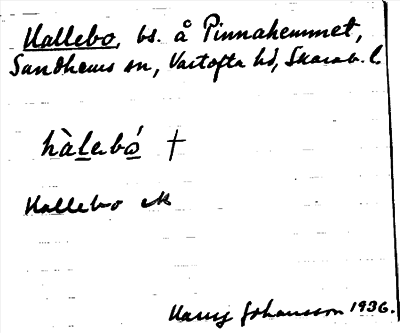 Hallebo, bs. å Pinnahemmet,
Sandhems sn, Vartofta hd, Skarab. l.
hàlebó †
Hallebo ek
Harry Johansson 1936.